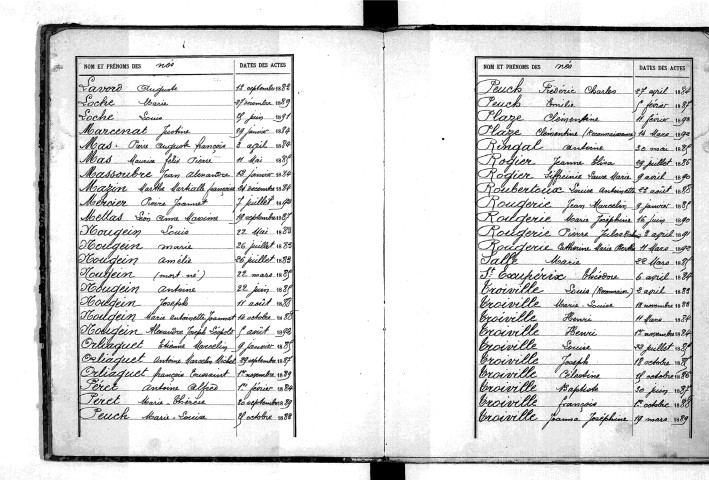 NOM ET PRÉNOMS DES nés DATES DES ACTES
Lavord Auguste 12 septembre 1882
Loche Marie 27 décembre 1889
Loche Louis juin 1891
Marcenat Justine 29 janvier 1884
Mas Pierre Auguste françois 2 avril 1884
Mas Maurice félix Pierre 11 Mai 188
Massoubre Jean alexandre 12 janvier 1884
Mazin Marthe Martialle françoise décembre 1884
Mercier Pierre Joannet 7 juillet 1890
Mellas Léon Anne Maxime 19 septembre 1887
Nougein Louis 22 Mai 1883
Nougein marie 26 juillet 1883
Nougein Amélie 26 juillet 1883
Nougein (mort-né) 22 mars 188
Nougein Antoine 22 juin 188
Nougein Joseph 11 août 188
Nougein Marie antoinette Joannet 14 octobre 188
Nougein Alexandre Joseph Léopold août 1892
Orliaguet Etienne Marcelin 9 janvier 188
Orliaguet Antoine Marcelin Michel 29 septembre 1887
Orliaguet françois Toussaint 1er novembre 1889
Péret Antoine Alfred 1er février 1884
Péret Marie-Thérèse 20 septembre 1889
Peuck Marie-Louise octobre 1882
NOM ET PRÉNOMS DES nés DATES DES ACTES
Peuck Frédéric Charles 27 avril 1884
Peuck Emilie février 1887
Plaze Clémentine 11 février 1892
Plaze Clémentine (Reconnaissance) 14 Mars 1892
Ringal Antoine 20 mai 188
Rogier Jeanne Elisa 29 juillet 1886
Rogier Marie 9 avril 1890
Roubertoux Louise Antoinette 22 août 188
Rougerie Jean Marcelin 9 janvier 188
Rougerie Marie Joséphine 16 juin 1890
Rougerie Pierre Jules 2 avril 1891
Rougerie Catherine Marie Berthe 11 Mars 1892
Salle Marie 22 Mars 188
St Exupérix Théodore 6 avril 1884
Troiville Louis (Reconnaiss.) 2 avril 1883
Troiville Marie-Louise 18 novembre 1883
Troiville Henri 11 Mars 1884
Troiville Henri 1er novembre 1884
Troiville Louise 22 juillet 188
Troiville Joseph 18 octobre 188
Troiville Célestine octobre 1886
Troiville Baptiste 20 juin 1887
Troiville françois 1er octobre 1888
Troiville Jeanne Joséphine 19 mars 1889